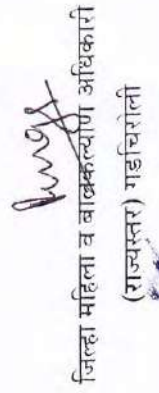 जिल्हा महिला व बालकल्याण अधिकारी
(राज्यस्तर) गडचिरोली